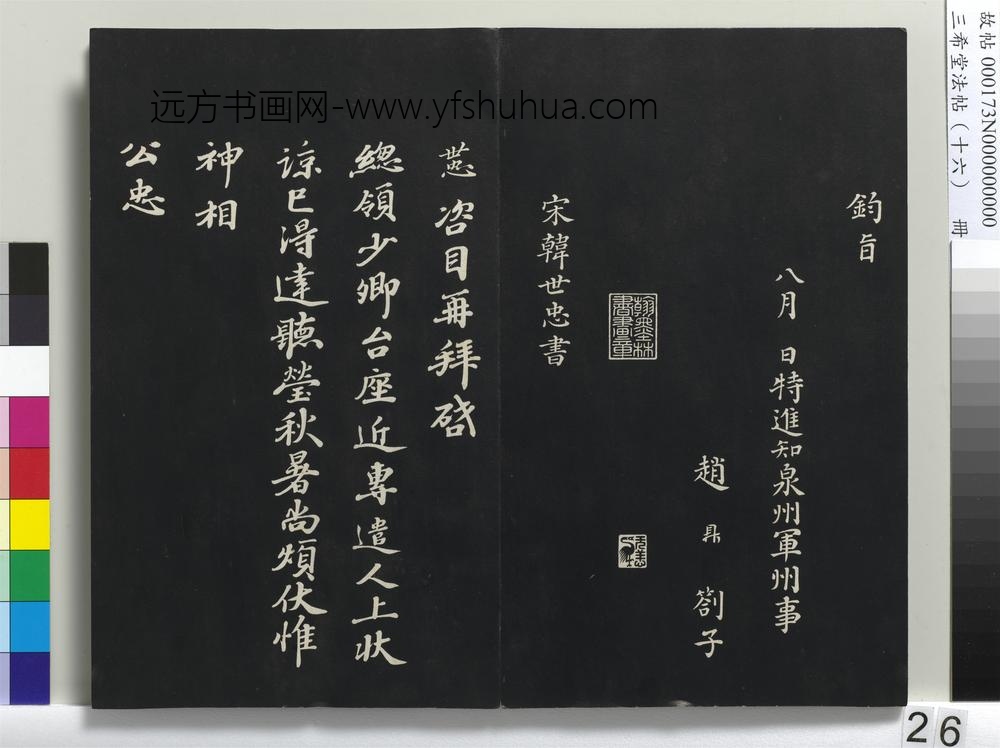 故帖 000173N000000000
三希堂法帖(十六) 冊
远方书画网-www.yfshuhua.com
鈞旨
八月 日特進知泉州軍州事
趙鼎劄子
宋韓世忠書
咨目再拜啓
總領少卿台座近專遣人上狀
諒已得達聽瑩秋暑尚煩伏惟
神相
公忠
26